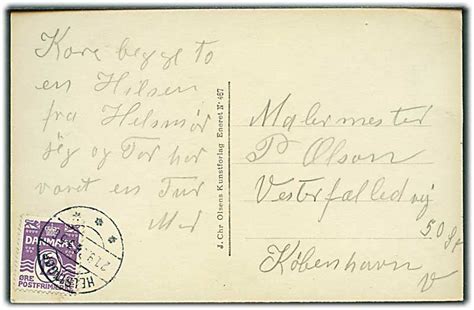 Kære begge to
en Hilsen
fra Helsinør
jeg og Tor har
varet en Tur
Med
J. Chr Olsens Kunstforlag Eneret № 467
Malermester
P Olson
Vesterfælledvej
50 st
København
V
DANMARK
ØRE
POSTFRIM
HELSINGØR